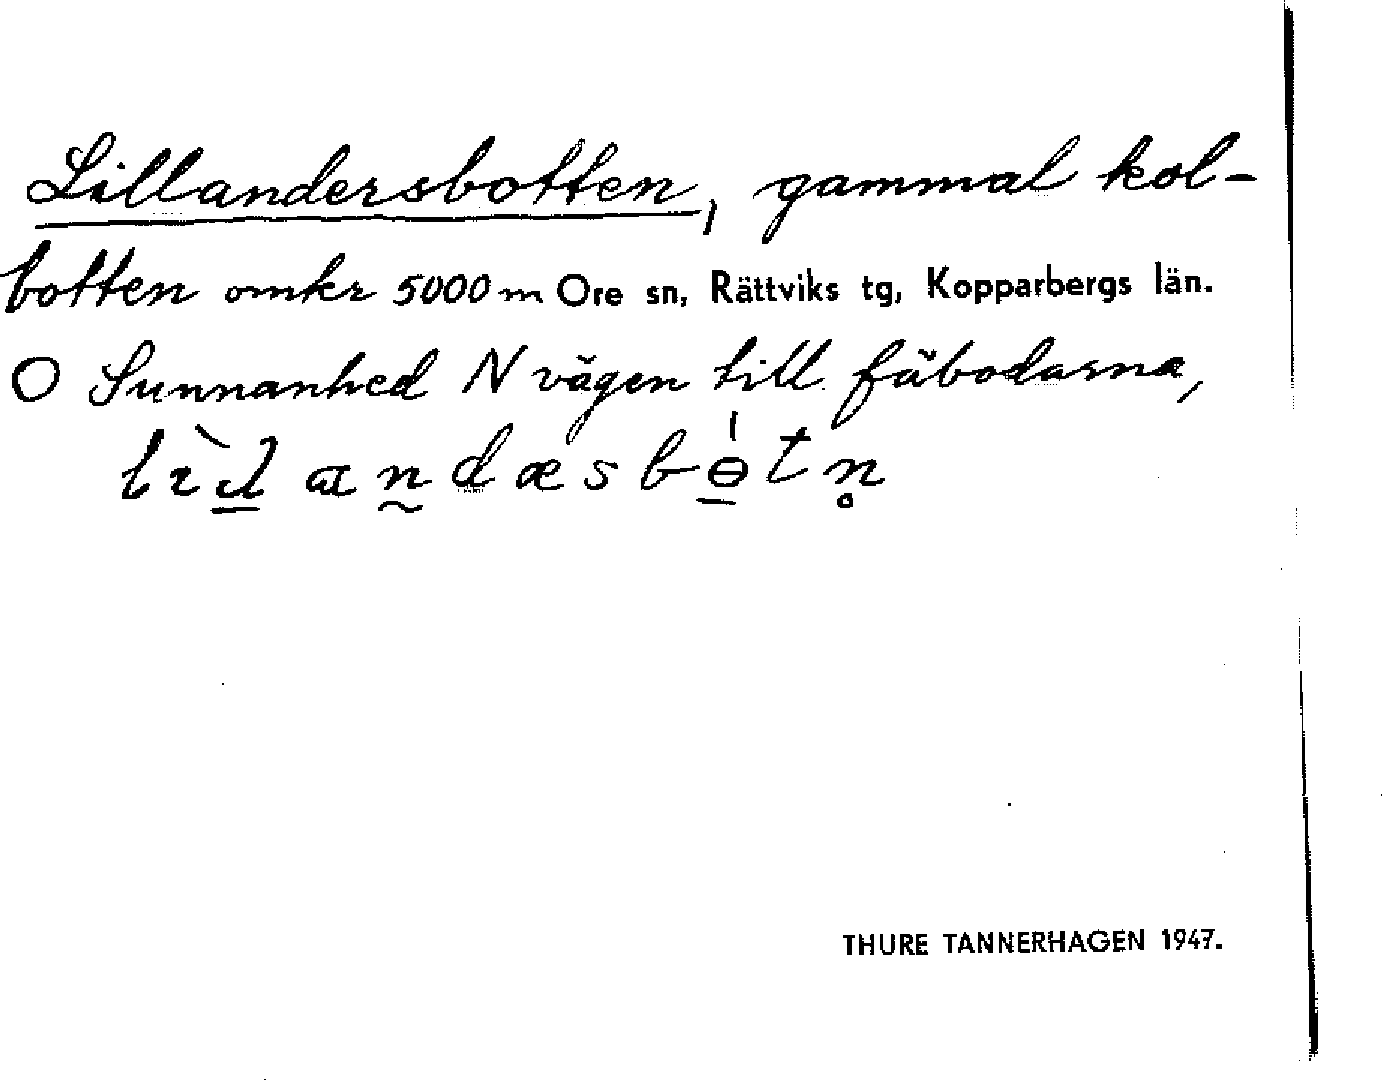 Lillandersbotten, gammal kol-
botten omkr 5000 m Ore sn, Rättviks tg, Kopparbergs län.
O Sunnanhed N vägen till fäbodarna,
THURE TANNERHAGEN 1947.